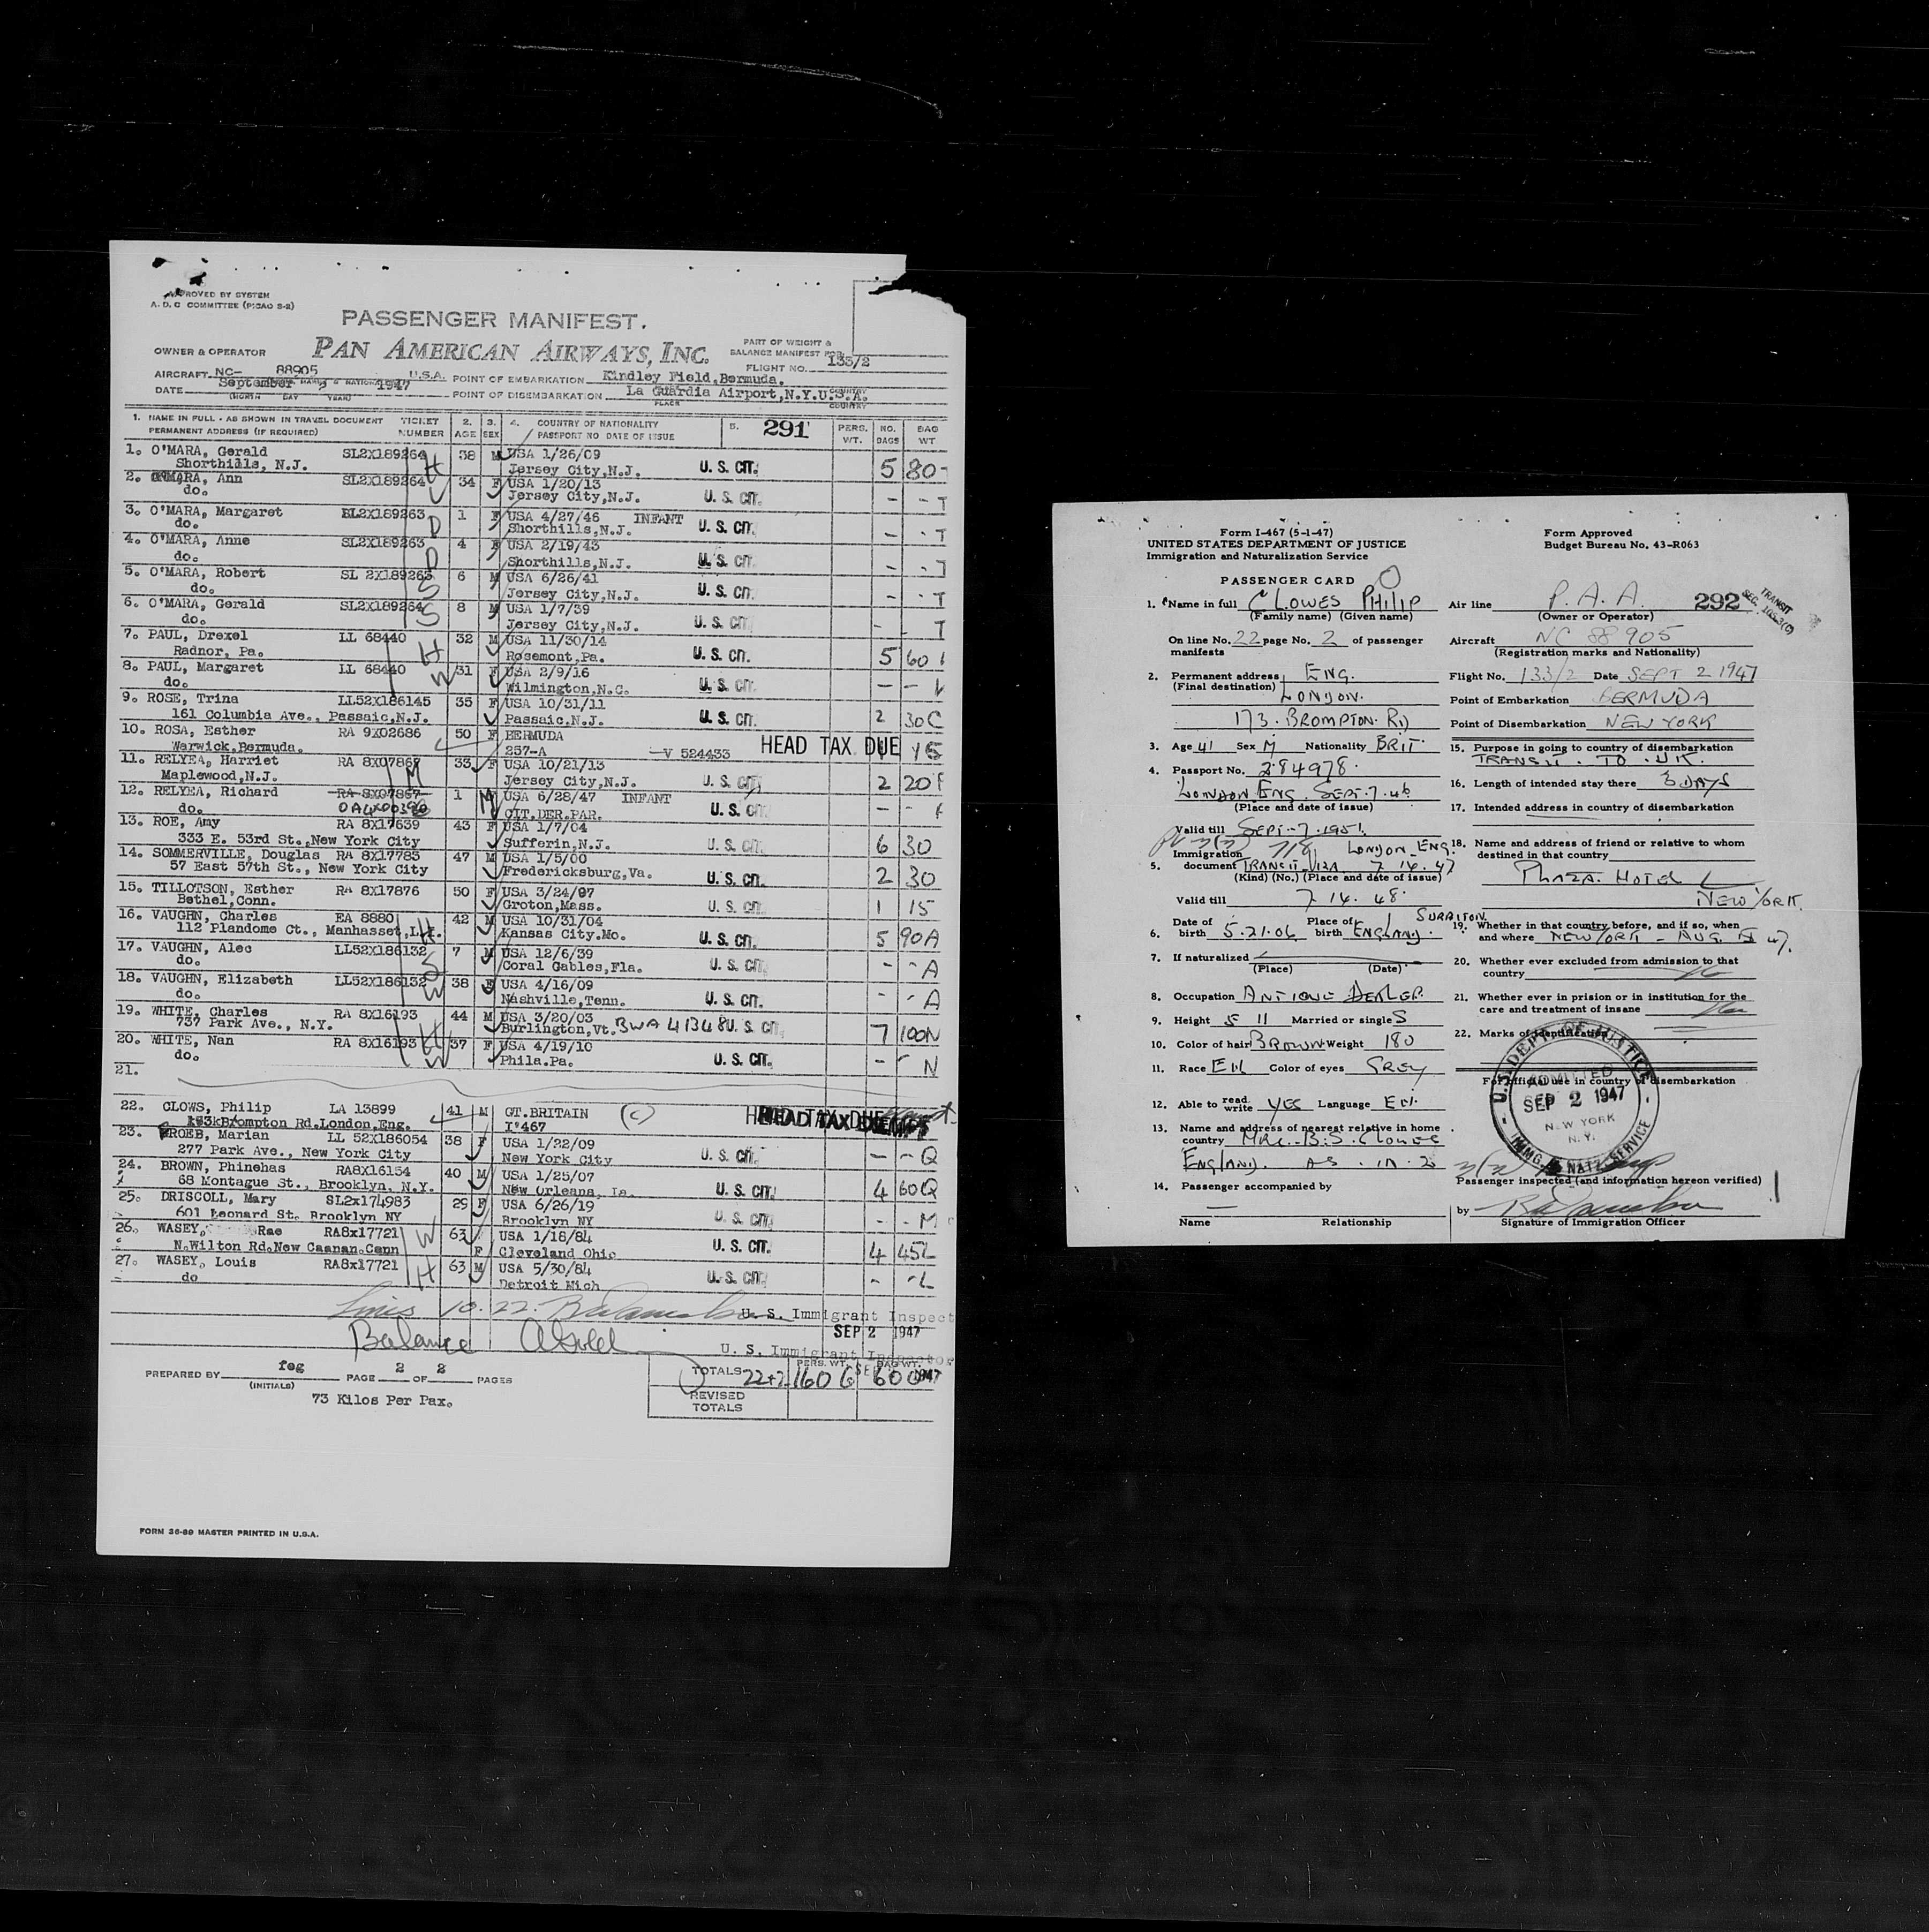 APPROVED BY SYSTEM
A. D. C COMMITTEE (PICAO S-2)
PASSENGER MANIFEST.
OWNER & OPERATOR PAN AMERICAN AIRWAYS, INC.
PART OF WEIGHT &
BALANCE MANIFEST FOR
FLIGHT NO. 133/2
AIRCRAFT NC- 88905 U.S.A. POINT OF EMBARKATION Kindley Field, Bermuda.
DATE September 2 1947 POINT OF DISEMBARKATION La Guardia Airport, N.Y. U.S.A.
(MONTH DAY YEAR) PLACE COUNTRY
1. NAME IN FULL - AS SHOWN IN TRAVEL DOCUMENT TICKET 2. 3. 4. COUNTRY OF NATIONALITY 5. 291 PERS. NO. BAG
PERMANENT ADDRESS (IF REQUIRED) NUMBER AGE SEX PASSPORT NO DATE OF ISSUE WT. BAGS WT
1. O'MARA, Gerald SL2X189264 H 38 M USA 1/26/09
Shorthills, N.J. Jersey City, N.J. U. S. CIT. 5 80-
2. O'MARA, Ann SL2X189264 34 F USA 1/20/13
do. Jersey City, N.J. U. S. CIT. - - T
3. O'MARA, Margaret SL2X189263 D 1 F USA 4/27/46 INFANT
do. Shorthills, N.J. U. S. CIT. - - T
4. O'MARA, Anne SL2X189263 D 4 F USA 2/19/43
do. Shorthills, N.J. U. S. CIT. - - T
5. O'MARA, Robert SL 2X189263 S 6 M USA 6/26/41
do. Jersey City, N.J. U. S. CIT. - - T
6. O'MARA, Gerald SL2X189264 S 8 M USA 1/7/39
do. Jersey City, N.J. U. S. CIT. - - T
7. PAUL, Drexel LL 68440 H 32 M USA 11/30/14
Radnor, Pa. Rosemont, Pa. U. S. CIT. 5 60
8. PAUL, Margaret LL 68440 W 31 F USA 2/9/16
do. Wilmington, N.C. U. S. CIT. - -
9. ROSE, Trina LL52X186145 35 F USA 10/31/11
161 Columbia Ave., Passaic, N.J. Passaic, N.J. U. S. CIT. 2 30C
10. ROSA, Esther RA 9X02686 50 F BERMUDA
Warwick, Bermuda. 237-A -V 524433 HEAD TAX DUE 15
11. RELYEA, Harriet RA 8X07867 M 33 F USA 10/21/13
Maplewood, N.J. Jersey City, N.J. U. S. CIT. 2 20
12. RELYEA, Richard RA 8X07867 1 M USA 6/28/47 INFANT
do. CIT. DER. PAR. U. S. CIT. - -
13. ROE, Amy RA 8X17639 43 F USA 1/7/04
333 E. 53rd St., New York City Sufferin, N.J. U. S. CIT. 6 30
14. SOMMERVILLE, Douglas RA 8X17783 47 M USA 1/5/00
57 East 57th St., New York City Fredericksburg, Va. U. S. CIT. 2 30
15. TILLOTSON, Esther RA 8X17876 50 F USA 3/24/97
Bethel, Conn. Groton, Mass. U. S. CIT. 1 15
16. VAUGHN, Charles EA 8880 H 42 M USA 10/31/04
112 Plandome Ct., Manhasset, L.I. Kansas City. Mo. U. S. CIT. 5 90A
17. VAUGHN, Alec LL52X186132 S 7 M USA 12/6/39
do. Coral Gables, Fla. U. S. CIT. - - A
18. VAUGHN, Elizabeth LL52X186132 W 38 F USA 4/16/09
do. Nashville, Tenn. U. S. CIT. - - A
19. WHITE, Charles RA 8X16193 H 44 M USA 3/20/03
737 Park Ave., N.Y. Burlington, Vt. BWA 41348 U. S. CIT. 7 100N
20. WHITE, Nan RA 8X16193 W 37 F USA 4/19/10
do. Phila. Pa. U. S. CIT. - - N
21.
22. CLOWS, Philip LA 13899 41 M GT. BRITAIN (c) HEAD TAX DUE
Brompton Rd. London, Eng. I-467 HEAD TAX EXEMPT
23. BROEB, Marian LL 52X186054 38 F USA 1/22/09
277 Park Ave., New York City New York City U. S. CIT. - - Q
24. BROWN, Phinehas RA8X16154 40 M USA 1/25/07
68 Montague St., Brooklyn, N.Y. New Orleans, La. U. S. CIT. 4 60Q
25. DRISCOLL, Mary SL2x174983 29 F USA 6/26/19
601 Leonard St. Brooklyn NY Brooklyn NY U. S. CIT. - - M
26. WASEY, Rae RA8x17721 W 63 USA 1/18/84
N. Wilton Rd. New Caanan. Conn F Cleveland Ohio U. S. CIT. 4 45L
27. WASEY, Louis RA8x17721 H 63 M USA 5/30/84
do Detroit Mich U. S. CIT. - - L
Lines 10. 22. U. S. Immigrant Inspect
SEP 2 1947
Balance
U. S. Immigrant Inspector
PREPARED BY feg PAGE 2 OF 2 PAGES
(INITIALS)
TOTALS 22+2 PERS. WT. 1606 BAG WT. 600
REVISED
TOTALS
73 Kilos Per Pax.
FORM 36-89 MASTER PRINTED IN U.S.A.
Form I-467 (5-1-47)
UNITED STATES DEPARTMENT OF JUSTICE
Immigration and Naturalization Service
Form Approved
Budget Bureau No. 43-R063
PASSENGER CARD
1. Name in full CLOWES PHILIP
(Family name) (Given name)
On line No. 22 page No. 2 of passenger
manifests
2. Permanent address ENG.
(Final destination) LONDON.
173. BROMPTON. RD
3. Age 41 Sex M Nationality BRIT.
4. Passport No. 284978.
LONDON ENG. SEPT. 7. 46
(Place and date of issue)
Valid till SEPT-7.1951.
Immigration 718 LONDON ENG.
5. document TRANSIT VISA 7. 14. 47
(Kind) (No.) (Place and date of issue)
Valid till 7 14. 48.
6. Date of birth 5.21.06 Place of birth SURBITON ENGLAND.
7. If naturalized
(Place) (Date)
8. Occupation ANTIQUE DEALER.
9. Height 5 11 Married or single S
10. Color of hair BROWN Weight 180
11. Race EN Color of eyes GREY
12. Able to read write YES Language EN.
13. Name and address of nearest relative in home
country MRS. B.S. CLOWES
ENGLAND. AS. IN. 2
14. Passenger accompanied by
Name Relationship
Air line P. A. A. 292 TRANSIT
(Owner or Operator)
Aircraft NC 88905
(Registration marks and Nationality)
Flight No. 133/2 Date SEPT 2 1947
Point of Embarkation BERMUDA
Point of Disembarkation NEW YORK
15. Purpose in going to country of disembarkation
TRANSIT. TO. UK.
16. Length of intended stay there 3 DAYS
17. Intended address in country of disembarkation
18. Name and address of friend or relative to whom
destined in that country
PLAZA. HOTEL
NEW YORK.
19. Whether in that country before, and if so, when
and where NEW YORK - AUG. 47.
20. Whether ever excluded from admission to that
country No
21. Whether ever in prision or in institution for the
care and treatment of insane
22. Marks of identification
For official use in country of disembarkation
U. S. DEPT. OF JUSTICE
ADMITTED
SEP 2 1947
NEW YORK
N. Y.
IMMG. & NATZ. SERVICE
Passenger inspected (and information hereon verified)
by
Signature of Immigration Officer